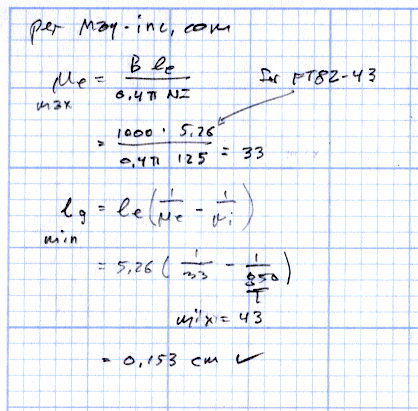 per Mag-inc.com
μe = B le / 0.4π NI
max
for FT82-43
= 1000 · 5.26 / 0.4π 125 = 33
lg = le (1/μe - 1/μi)
min
= 5.26 (1/33 - 1/850)
mix = 43
= 0.153 cm ✓